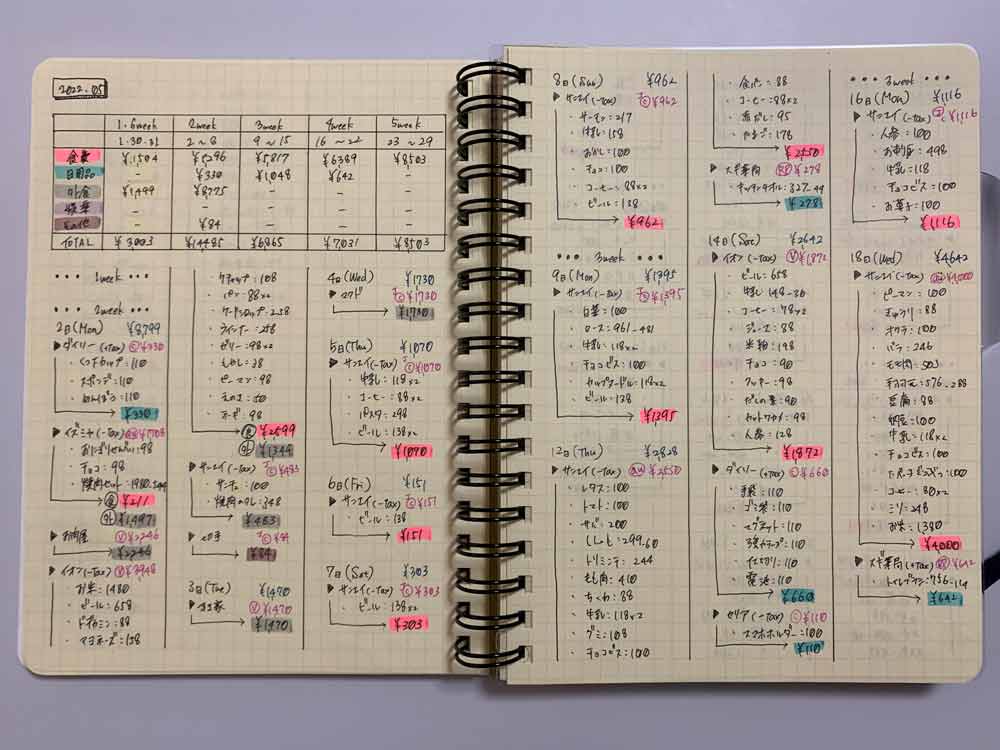 2022.05
1.6week 2week 3week 4week 5week
1.30.31 2〜8 9〜15 16〜22 23〜29
食費 ¥1,504 ¥5,296 ¥5,817 ¥6389 ¥8503
日用品 - ¥330 ¥1,048 ¥642 -
外食 ¥1,499 ¥8,775 - - -
娯楽 - - - - -
その他 - ¥84 - - -
TOTAL ¥3003 ¥14485 ¥6865 ¥7,031 ¥8503
••• 1week •••
••• 2week •••
2日(Mon) ¥8,799
▶ダイソー(+Tax) ¥330
・スポンジ:110
・めんぼう:110
¥330
▶イズミヤ(-Tax)
・チョコ:98
食 ¥211
外 ¥1,497
▶お肉屋 ¥2,246
¥2,246
▶イオン(-Tax) ¥3948
・お米:1480
・ビール:658
・マヨネーズ:158
・ケチャップ:108
・パン:88×2
・ウインナー:258
・ゼリー:98×2
・もやし:38
・ピーマン:98
・えのき:50
食 ¥2599
外 ¥1349
▶サンエイ(-Tax) ¥483
・サンチュ:100
・焼肉のタレ:348
¥483
▶切手 ¥84
¥84
3日(Tue) ¥1470
¥1470
¥1470
4日(Wed) ¥1730
▶マクド ¥1730
¥1,730
5日(Thu) ¥1070
▶サンエイ(-Tax) ¥1070
・牛乳:118×2
・コーヒー:88×2
・パスタ:298
・ビール:138×2
¥1070
6日(Fri) ¥151
▶サンエイ(-Tax) ¥151
・ビール:138
¥151
7日(Sat) ¥303
▶サンエイ(-Tax) ¥303
・ビール:138×2
¥303
8日(Sun) ¥962
▶サンエイ(-Tax) ¥962
・サーモン:217
・牛乳:158
・おかし:100
・チョコ:100
・コーヒー:88×2
・ビール:138
¥962
••• 3week •••
9日(Mon) ¥1395
▶サンエイ(-Tax) ¥1395
・白菜:100
・ロース:961-481
・牛乳:118×2
・チョコビス:100
・カップヌードル:118×2
・ビール:138
¥1395
12日(Thu) ¥2828
▶サンエイ(-Tax) ¥2550
・レタス:100
・トマト:100
・サビ:200
・ししとう:299-60
・トリミンチ:244
・もも肉:410
・ちくわ:88
・牛乳:118×2
・グミ:108
・チョコビス:100
・食パン:88
・コーヒー:88×2
¥2550
▶スギ薬局 ¥278
・キッチンタオル:327-49
¥278
14日(Sat) ¥2642
▶イオン(-Tax) ¥1872
・ビール:658
・牛乳:148-30
・コーヒー:78×2
・ジュース:88
・米粉:198
・チョコ:90
・クッキー:98
・だしの素:90
・カットワカメ:98
・人参:128
¥1872
▶ダイソー(+Tax) ¥660
・手袋:110
・ゴミ袋:110
・マグネット:110
・電池:110
¥660
▶セリア(-Tax) ¥110
・スマホホルダー:100
¥110
••• 3week •••
16日(Mon) ¥1116
▶サンエイ(-Tax) ¥1,116
・人参:100
・お刺身:498
・牛乳:118
・チョコビス:100
・お菓子:100
¥1116
18日(Wed) ¥4642
▶サンエイ(-Tax) ¥4000
・ピーマン:100
・きゅうり:88
・オクラ:100
・バラ:246
・モモ肉:503
・豆腐:88
・納豆:100
・牛乳:118×2
・チョコビス:100
・コーヒー:80×2
・ミリン:248
・お米:1380
¥4000
▶スギ薬局(+Tax) ¥642
・トイレットペーパー:756-114
¥642